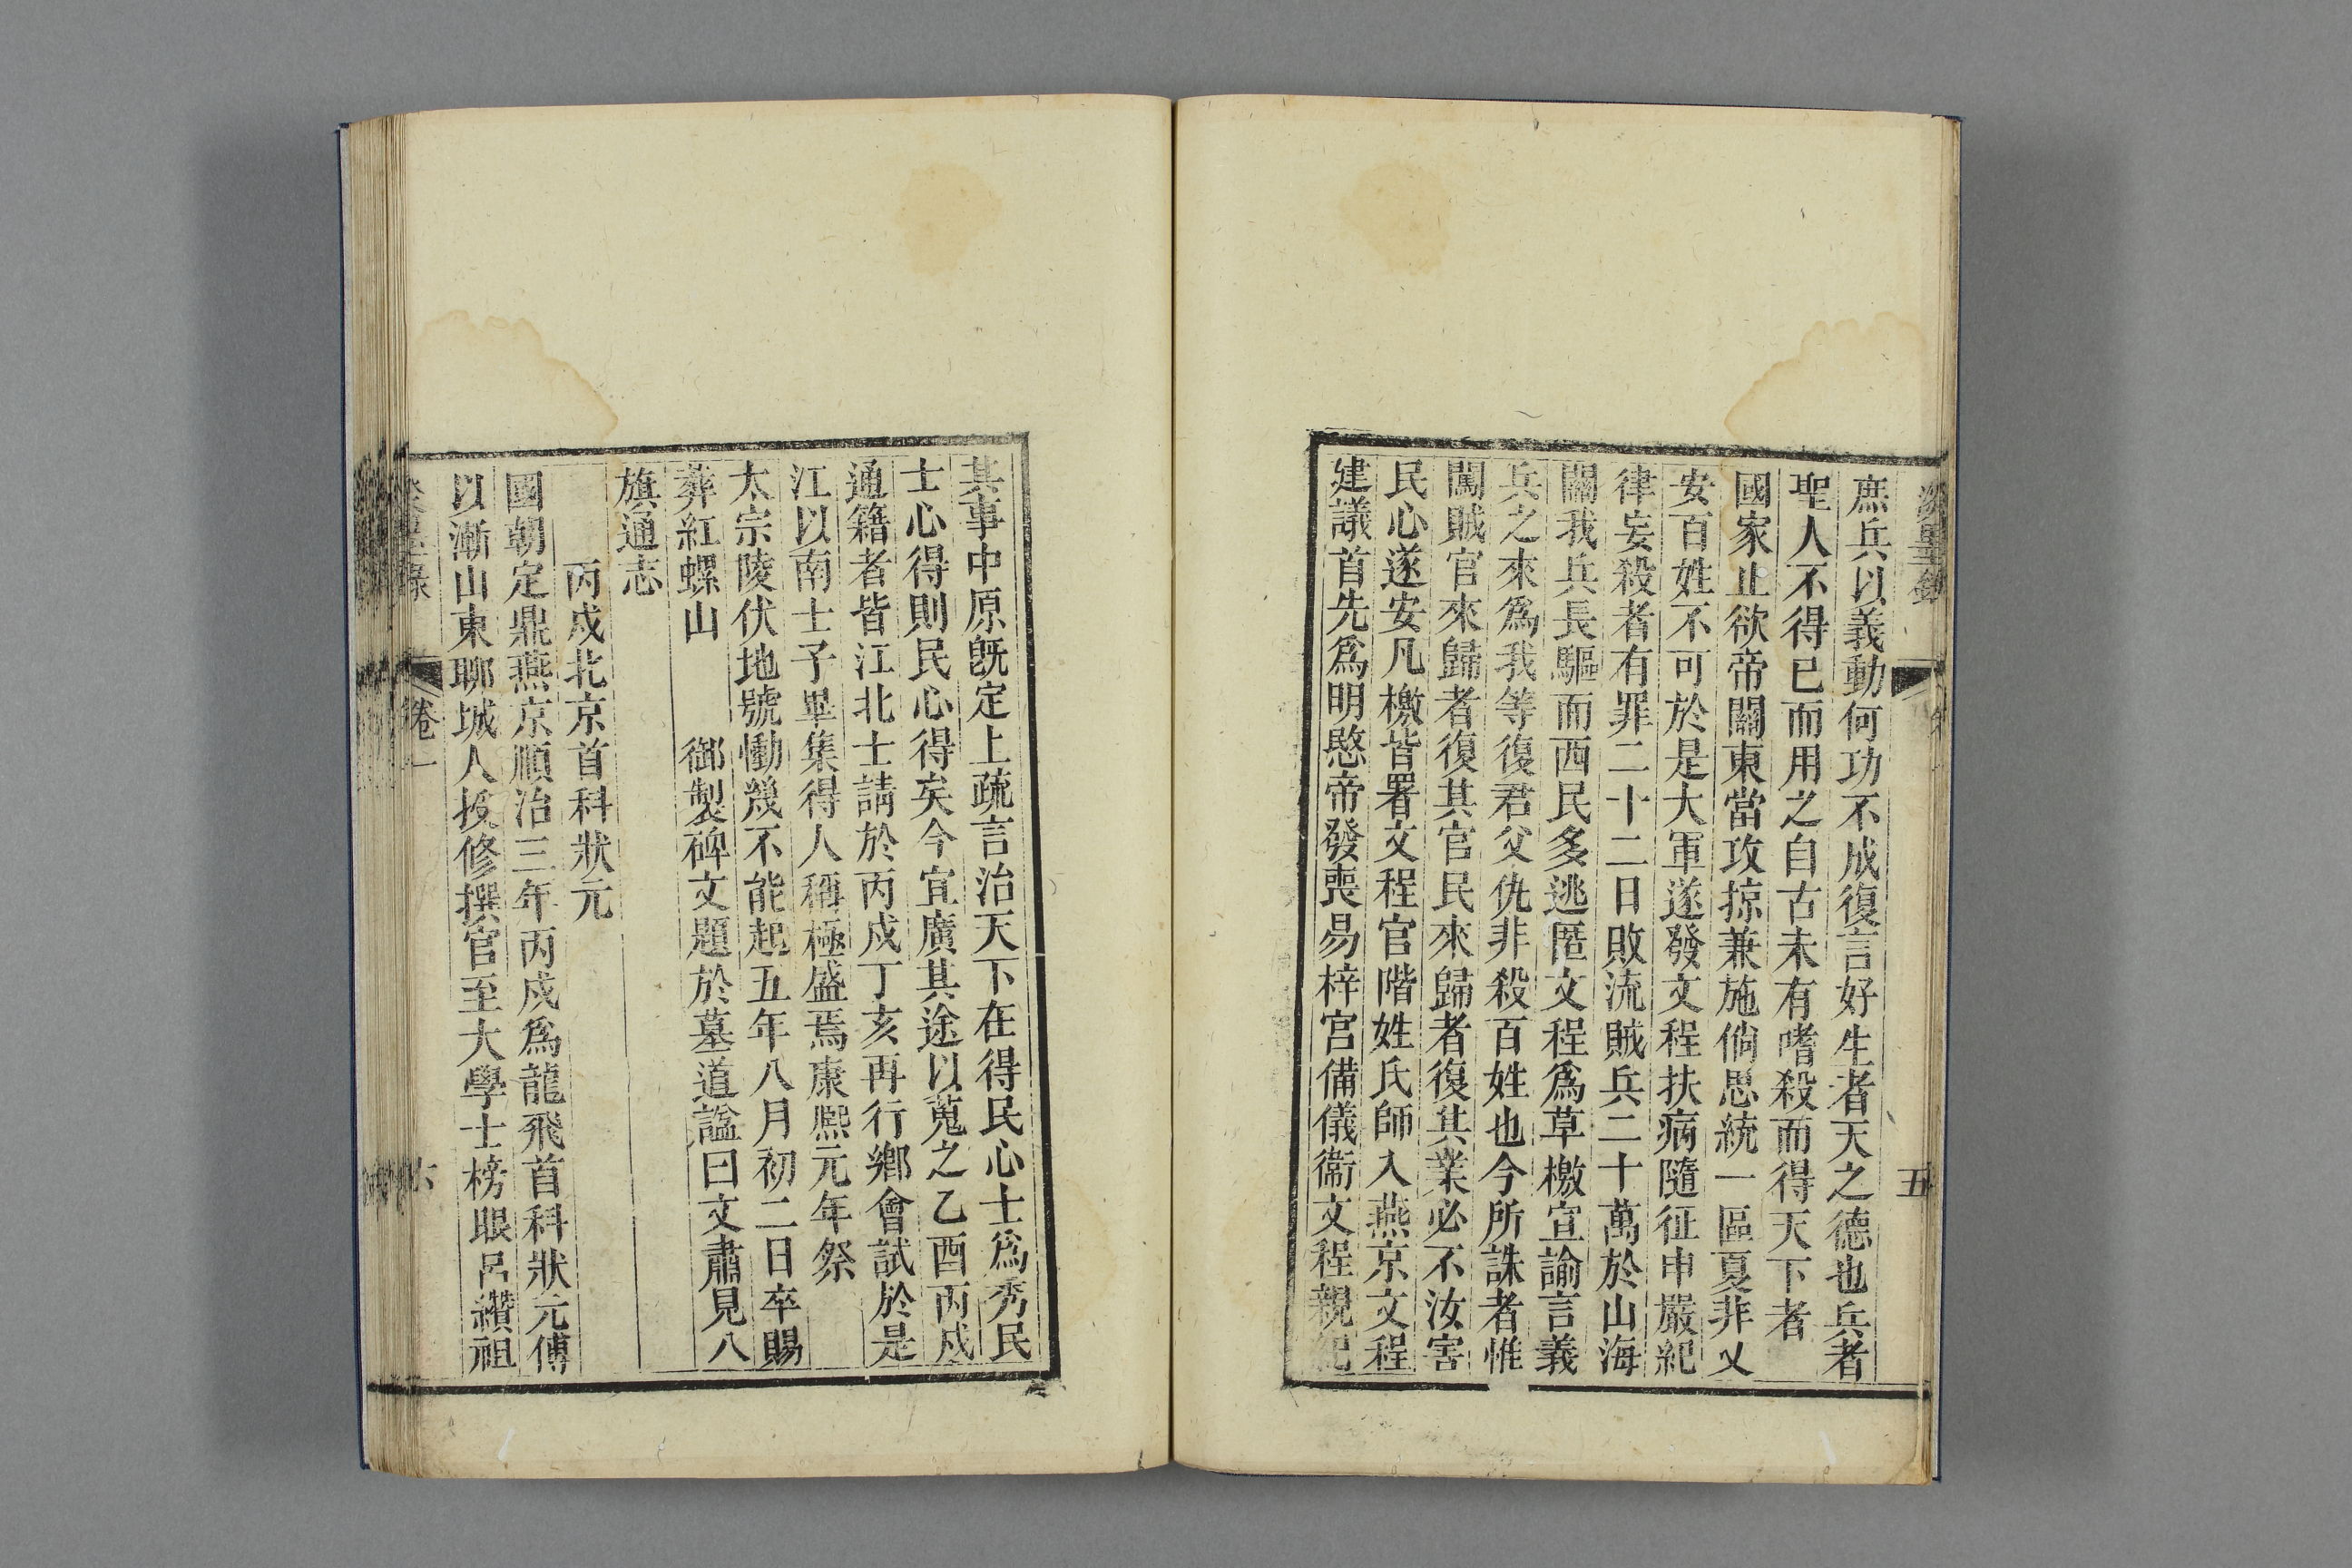 庶兵以義動何功不成復言好生者天之德也兵者
聖人不得已而用之自古未有嗜殺而得天下者
國家止欲帝關東當攻掠兼施倘思統一區夏非乂
安百姓不可於是大軍遂發文程扶病隨征申嚴紀
律妄殺者有罪二十二日敗流賊兵二十萬於山海
關我兵長驅而西民多逃匿文程爲草檄宣諭言義
兵之來爲我等復君父仇非殺百姓也今所誅者惟
闖賊官來歸者復其官民來歸者復其業必不汝害
民心遂安凡檄皆署文程官階姓氏師入燕京文程
建議首先爲明愍帝發喪易梓宮備儀衞文程親紀
五
其事中原旣定上疏言治天下在得民心士爲秀民
士心得則民心得矣今宜廣其途以蒐之乙酉丙戌
通籍者皆江北士請於丙戌丁亥再行鄉會試於是
江以南士子畢集得人稱極盛焉康熙元年祭
太宗陵伏地號慟幾不能起五年八月初二日卒賜
葬紅螺山　御製碑文題於墓道諡曰文肅見八
旗通志
丙戌北京首科狀元
國朝定鼎燕京順治三年丙戌爲龍飛首科狀元傅
以漸山東聊城人授修撰官至大學士榜眼呂纘祖
卷一
六